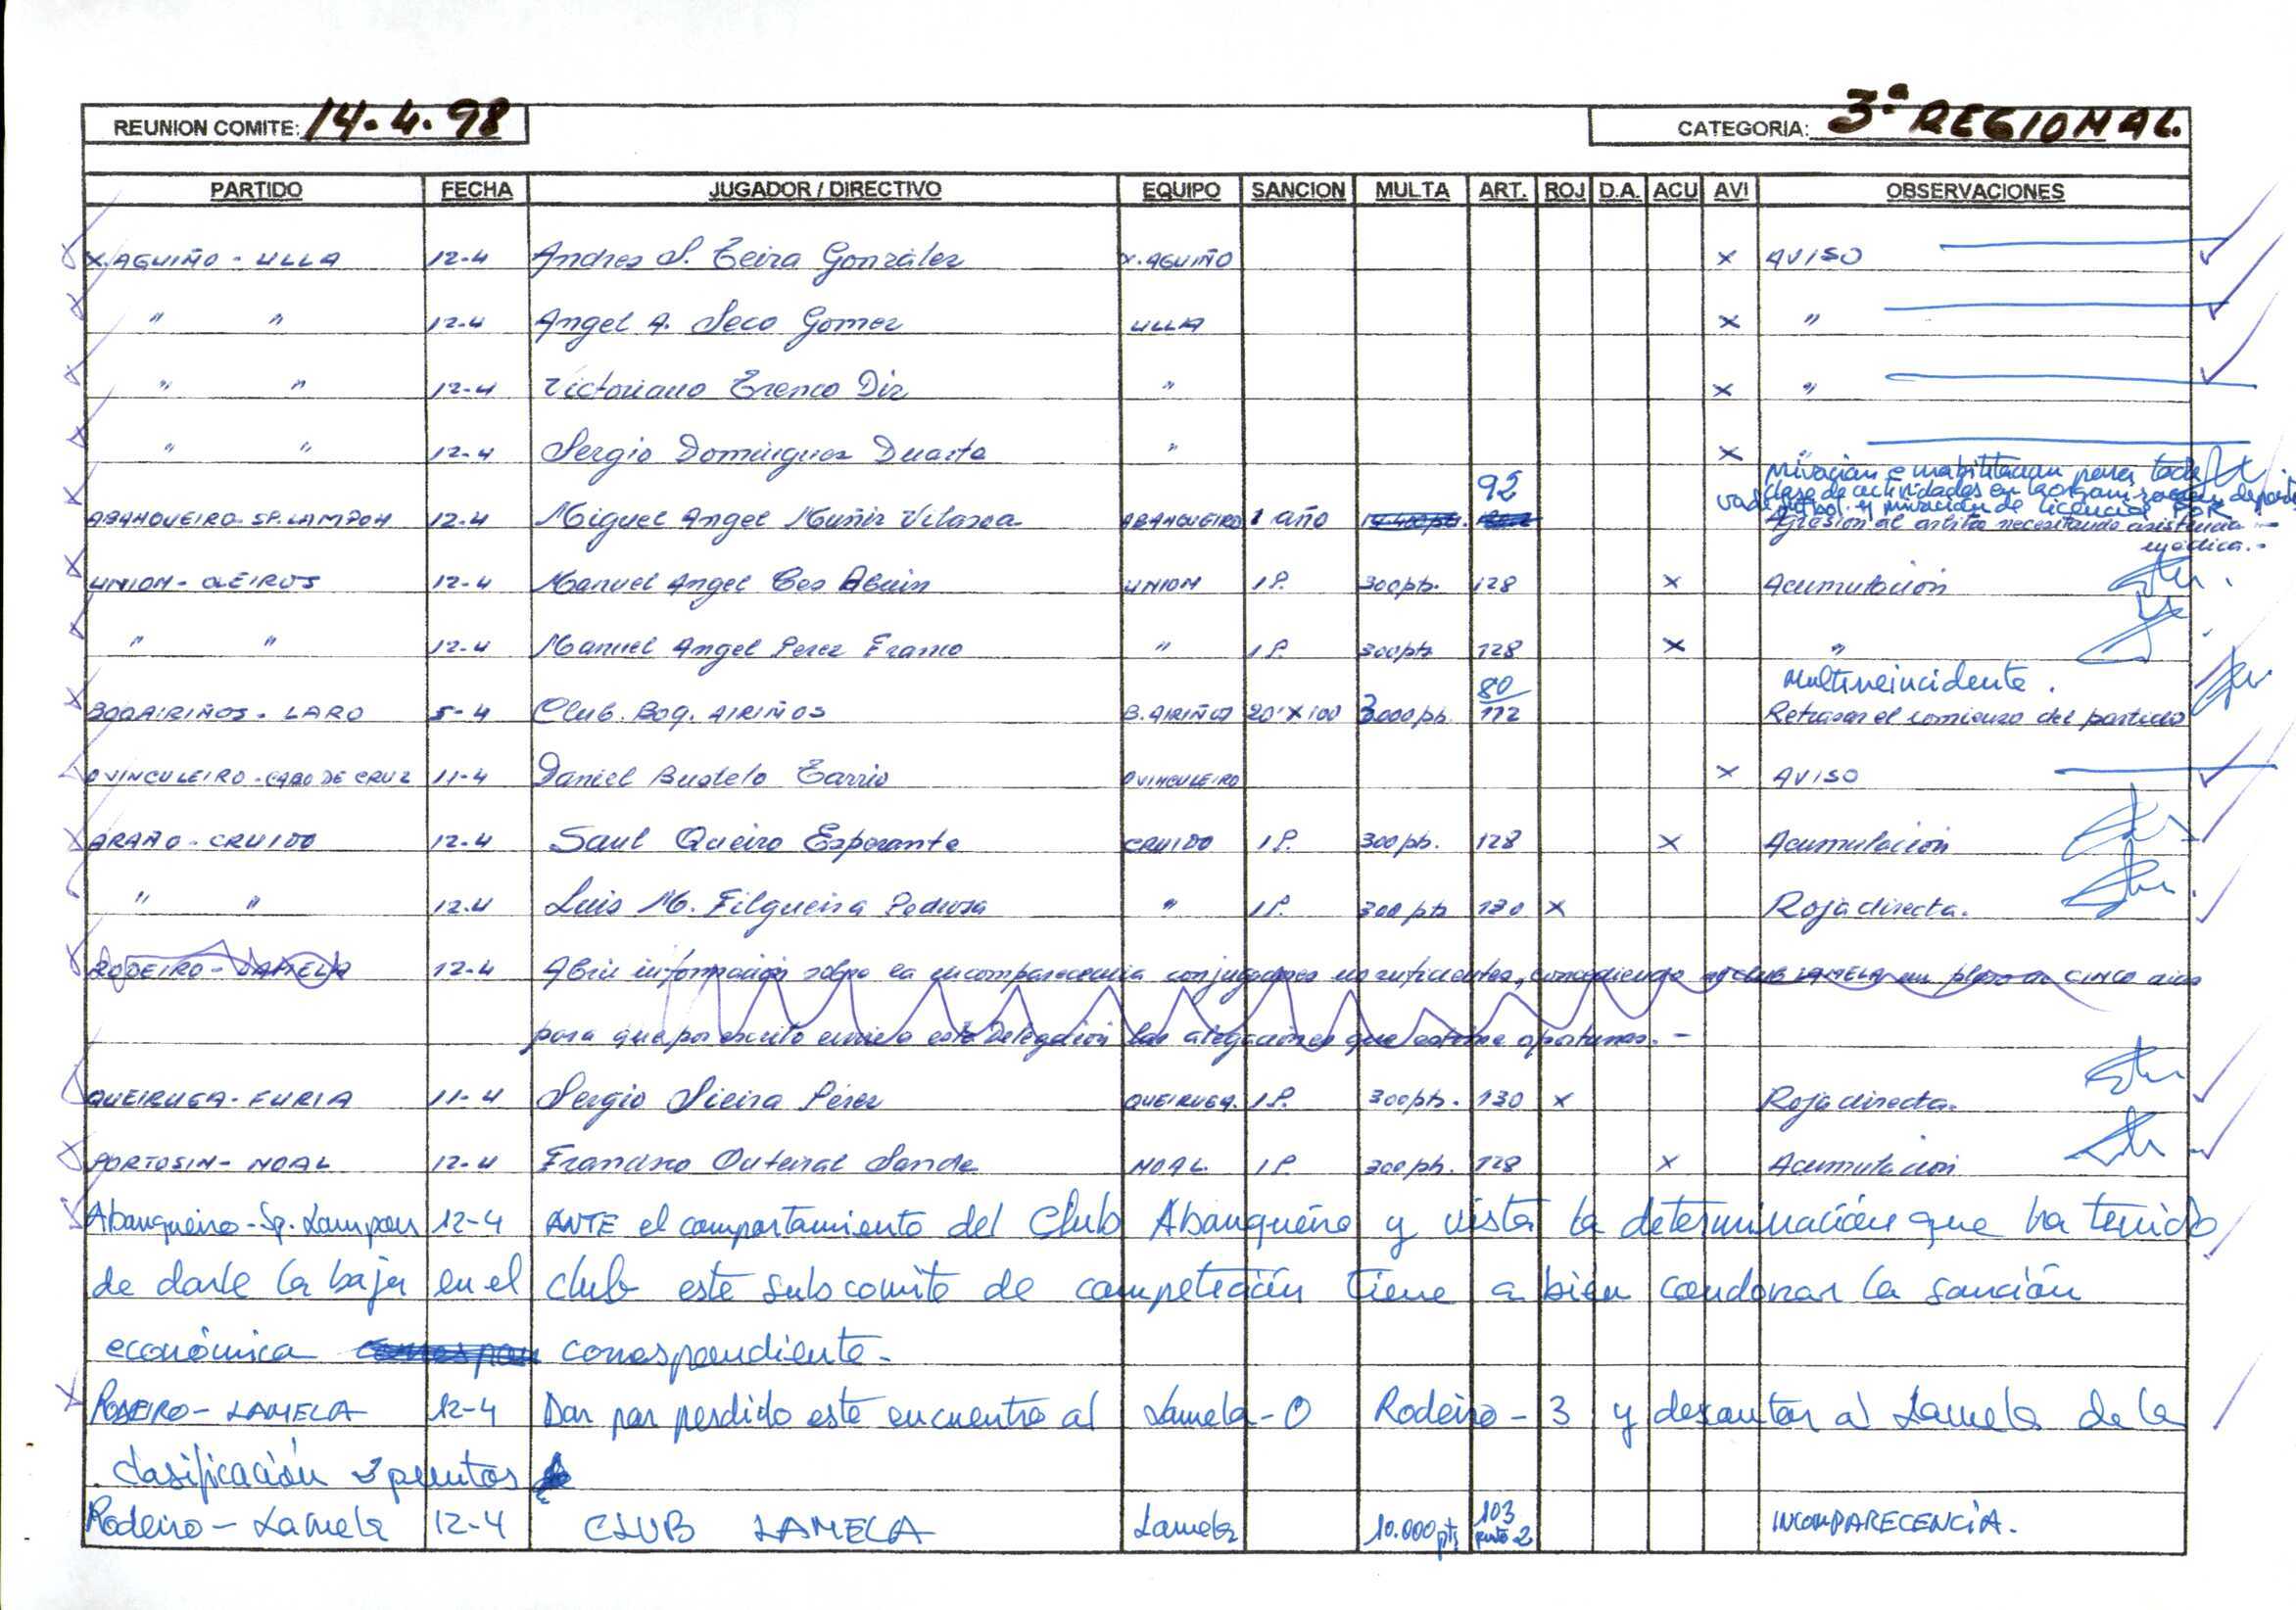 REUNION COMITE: 14.4.98 CATEGORIA: 3ª REGIONAL.
PARTIDO FECHA JUGADOR / DIRECTIVO EQUIPO SANCION MULTA ART. ROJ D.A. ACU AVI OBSERVACIONES
X. AGUIÑO - ULLA 12-4 Andres S. Teira González X. AGUIÑO x AVISO
" " 12-4 Angel A. Seco Gomez ULLA x "
" " 12-4 Victoriano Trenco Diz " x "
" " 12-4 Sergio Dominguez Duarte " x "
privación e inhabilitación para toda
92 clase de actividades en la organización deporti
va de futbol y privación de licencia POR
ABANQUEIRO-SP. LAMPON 12-4 Miguel Angel Muñiz Vilasoa ABANQUEIRO 1 año Agresión al arbitro necesitando asistencia
médica.-
UNION - OLEIROS 12-4 Manuel Angel Ces Abuin UNION 1 P. 300 pts. 128 x Acumulación
" " 12-4 Manuel Angel Perez Franco " 1 P. 300 pts 128 x "
80 Multireincidente.
BOQ AIRIÑOS - LARO 5-4 Club. Boq. AIRIÑOS B. AIRIÑOS 20' X 100 3000 pts. 112 Retrasar el comienzo del partido
O VINCULEIRO - CABO DE CRUZ 11-4 Daniel Bustelo Tarrio O VINCULEIRO x AVISO
ARAÑO - CRUIDO 12-4 Saul Queiro Esperante CRUIDO 1 P. 300 pts. 128 x Acumulación
" " 12-4 Luis M. Filgueira Pedrosa " 1 P. 300 pts 130 x Roja directa.
RODEIRO - LAMELA 12-4 Abrir información sobre la incomparecencia con jugadores insuficientes, concediendo al CLUB LAMELA un plazo de CINCO dias
para que por escrito envie a esta Delegación las alegaciones que estime oportunas. -
QUEIRUGA - FURIA 11-4 Sergio Sieira Pérez QUEIRUGA. 1 P. 300 pts. 130 x Roja directa.
PORTOSIN - NOAL 12-4 Francisco Outeiral Sande NOAL 1 P. 300 pts. 128 x Acumulación
Abanqueiro - Sp. Lampon 12-4 ANTE el comportamiento del Club Abanqueiro y vista la determinación que ha tenido
de darle la baja en el club este subcomite de competición tiene a bien condonar la sanción
económica correspondiente.
RODEIRO - LAMELA 12-4 Dar por perdido este encuentro al Lamela - 0 Rodeiro - 3 y descontar al Lamela de la
clasificación 3 puntos
Rodeiro - Lamela 12-4 CLUB LAMELA Lamela 10.000 pts 103 punto 2 INCOMPARECENCIA.